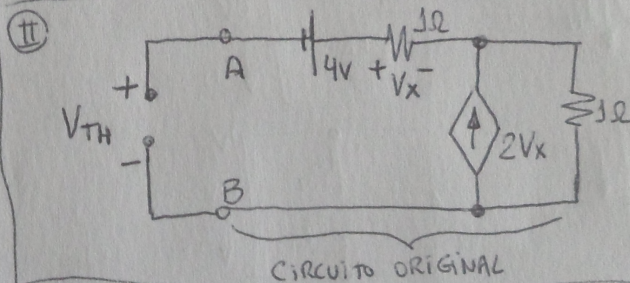 II
1Ω
+
A
4V
+ Vx -
VTH
2Vx
1Ω
-
B
CIRCUITO ORIGINAL